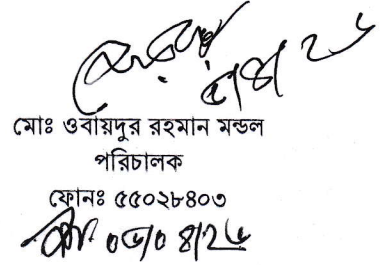 মোঃ ওবায়দুর রহমান মন্ডল
পরিচালক
ফোনঃ ৫৫০২৮৪০৩
০৬/০৪/২৬